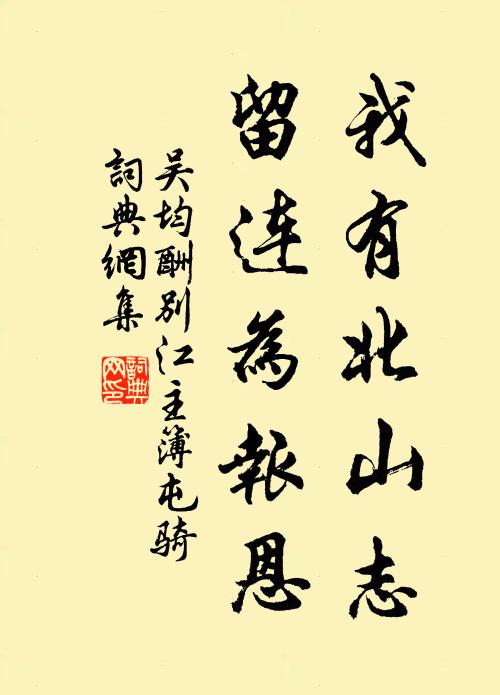 我有北山志
留連為報恩
吴均酬别江主簿屯騎
詞典網集
詞典网印